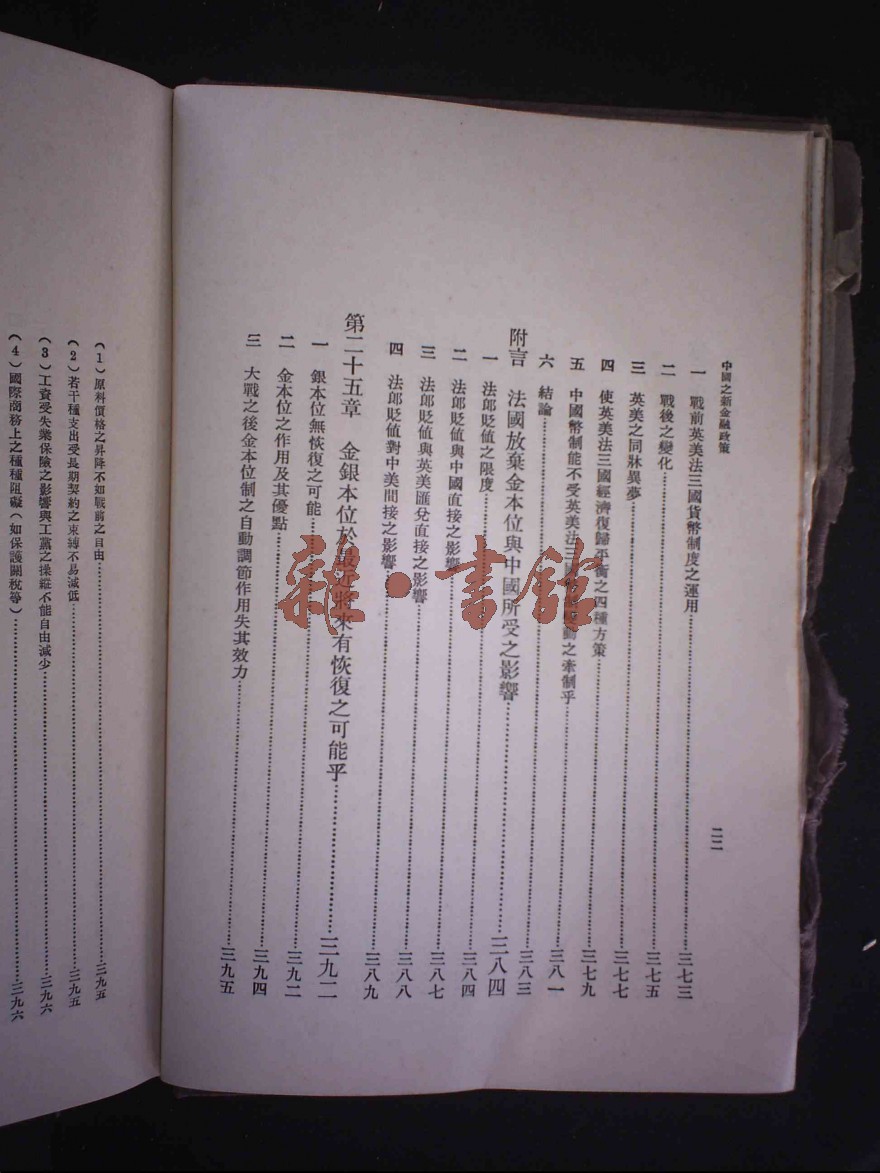 中國之新金融政策
二二
一 戰前英美法三國貨幣制度之運用……三七三
二 戰後之變化……三七五
三 英美之同牀異夢……三七七
四 使英美法三國經濟復歸平衡之四種方策……三七九
五 中國幣制能不受英美法三國動之牽制乎……三八一
六 結論……三八三
附言 法國放棄金本位與中國所受之影響……三八四
一 法郎貶值之限度……三八四
二 法郎貶值與中國直接之影響……三八七
三 法郎貶值與英美匯兌直接之影響……三八八
四 法郎貶值對中美間接之影響……三八九
第二十五章 金銀本位於最近將來有恢復之可能乎……三九二
一 銀本位無恢復之可能……三九二
二 金本位之作用及其優點……三九四
三 大戰之後金本位制之自動調節作用失其效力……三九五
(1)原料價格之昇降不如戰前之自由……三九五
(2)若干種支出受長期契約之束縛不易減低……三九五
(3)工資受失業保險之影響與工黨之操縱不能自由減少……三九六
(4)國際商務上之種種阻礙(如保護關稅等)……三九六
雜·書館